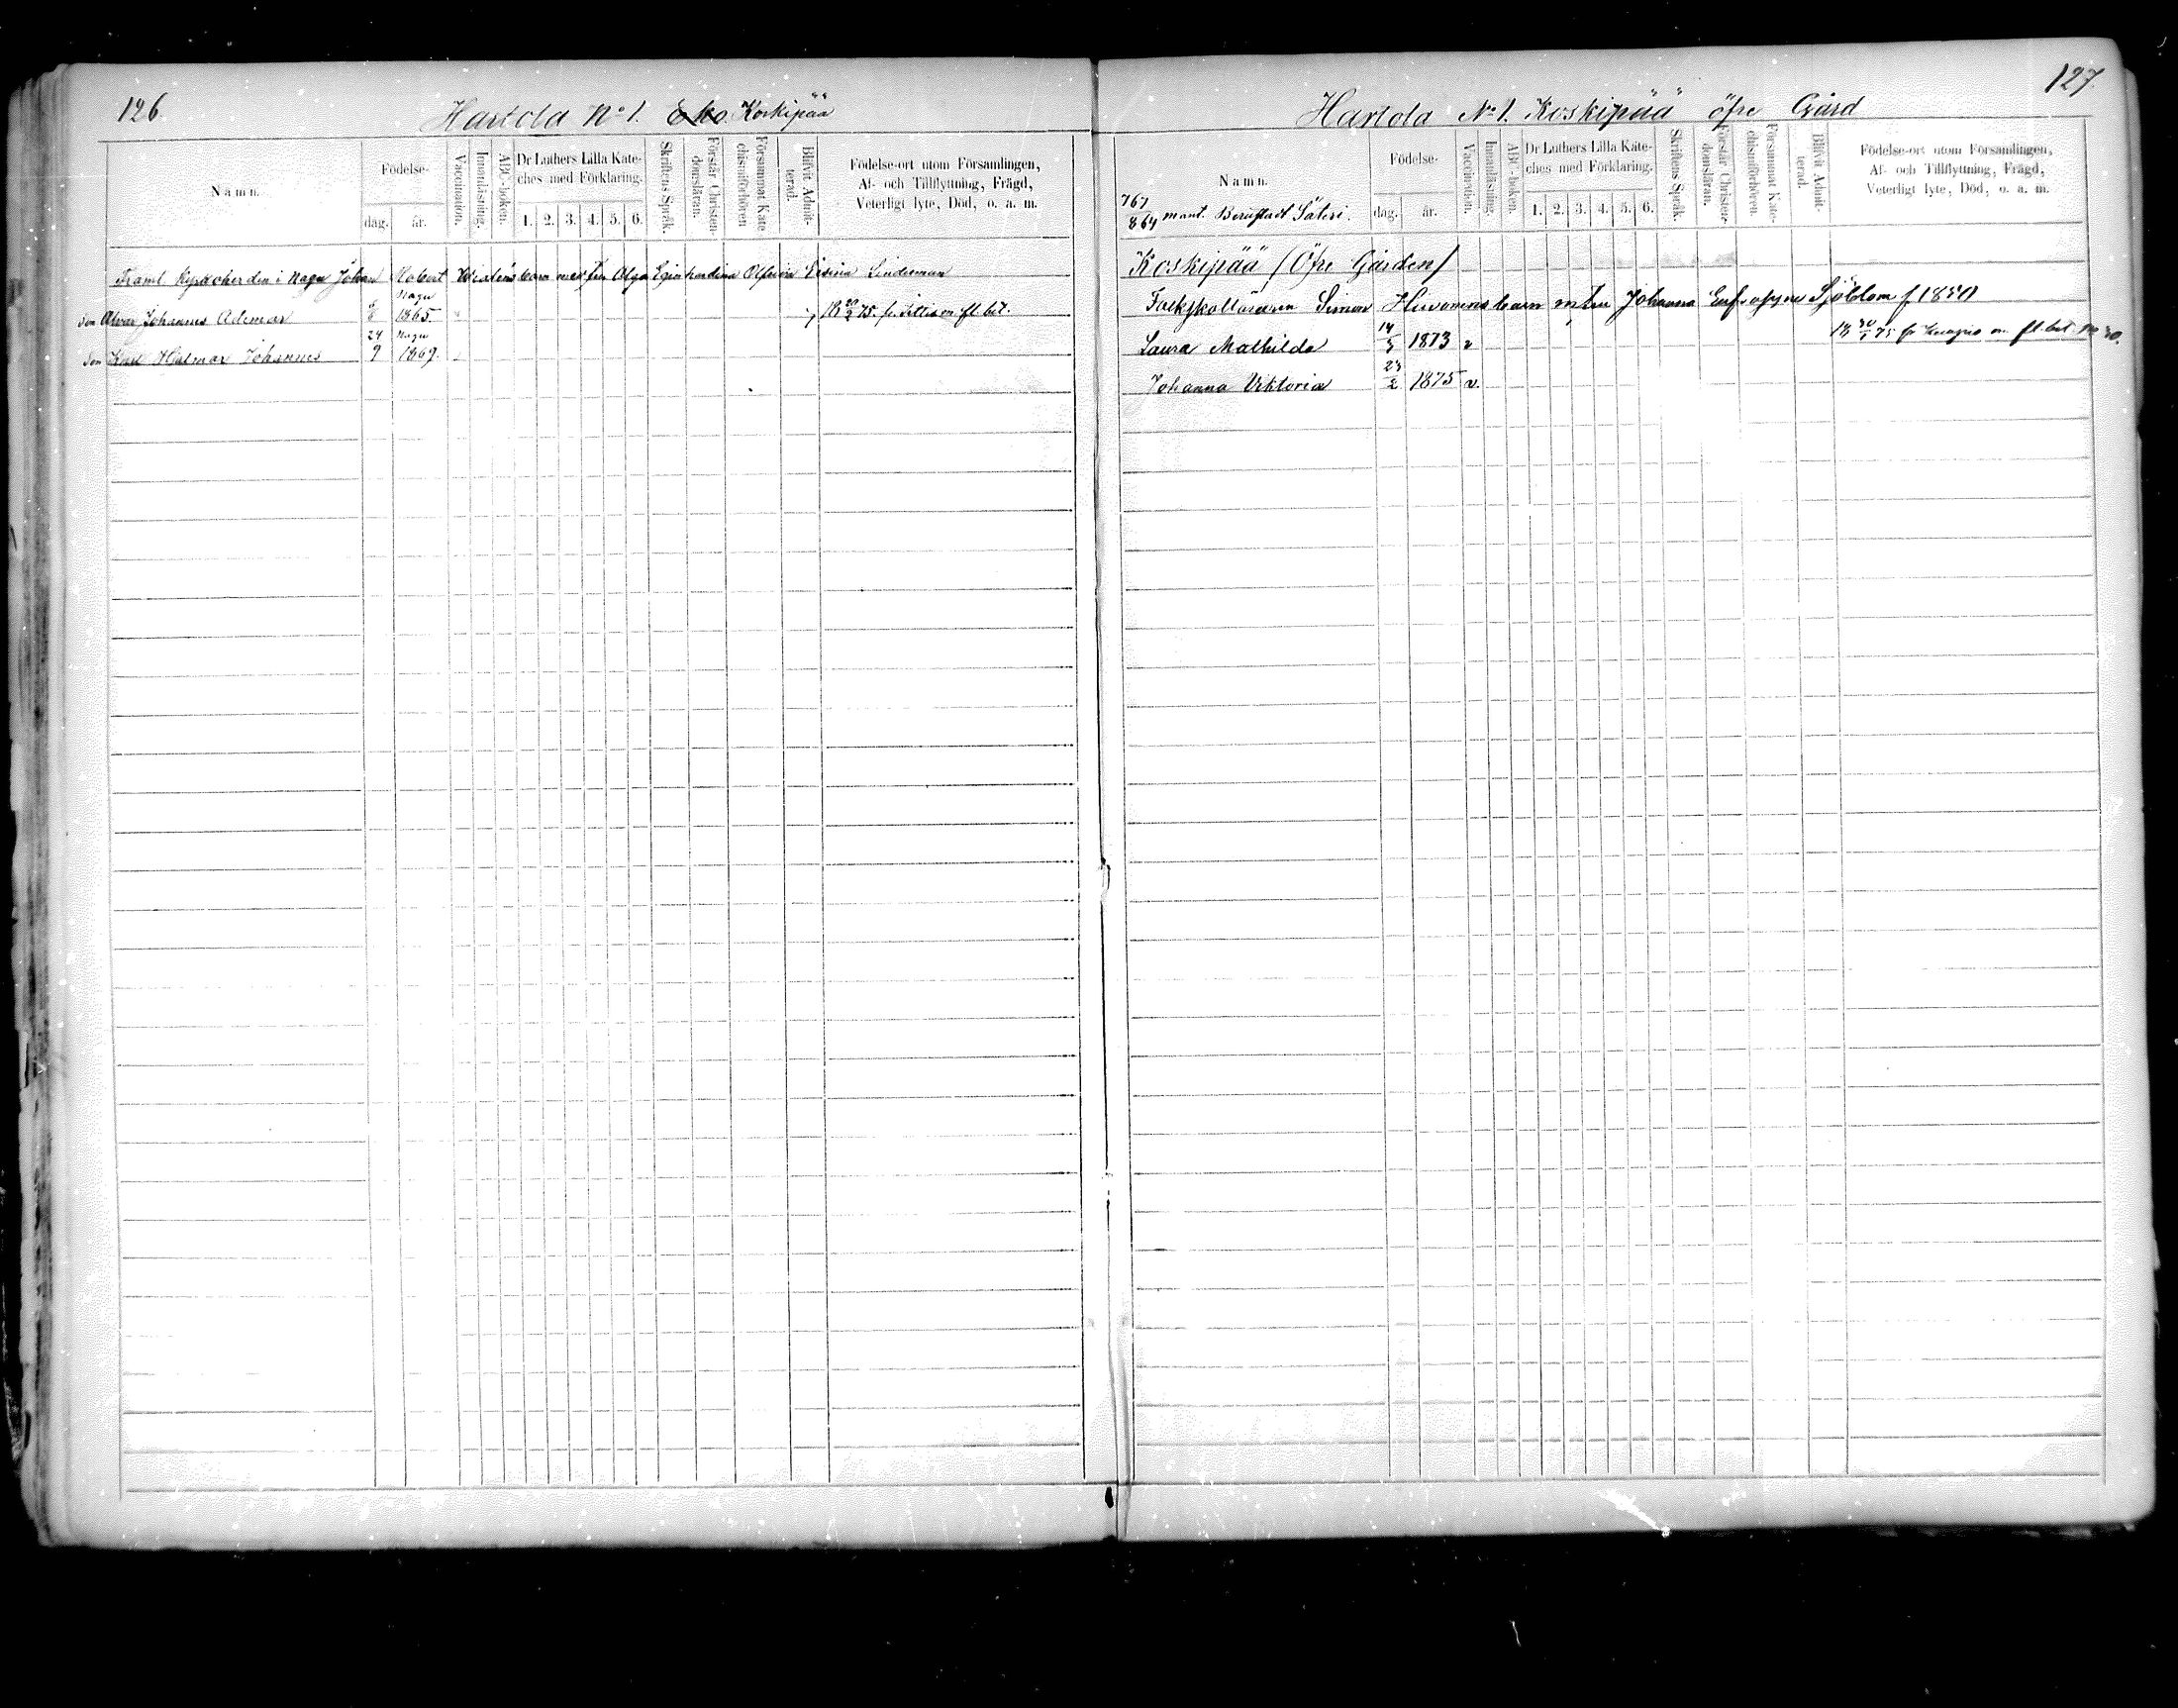 126.
Hartola No 1. Koskipää
Namn.
Födelse-
dag.
år.
Vaccination.
Innanläsning.
ABC-boken.
Dr Luthers Lilla Kate-
ches med Förklaring.
1. 2. 3. 4. 5. 6.
Skriftens Språk.
Förstår Christen-
domsläran.
Försummat Kate
chismiförhören
Blifvit Admit-
terad.
Födelse-ort utom Församlingen,
Af- och Tillflyttning, Frägd,
Veterligt lyte, Död, o. a. m.
Framl. Kyrkoherden i Nagu Johan Robert barn med fru Olga Lindeman
Nagu
son Alvar Johannes Ademar 1865. 75. fr. fl. bet.
24 Nagu
son Karl Hjalmar Johannes 9 1869.
127.
Hartola No 1. Koskipää öfre Gård
Namn.
767
864 mant. Säteri.
Födelse-
dag.
år.
Vaccination.
Innanläsning.
ABC-boken.
Dr Luthers Lilla Kate-
ches med Förklaring.
1. 2. 3. 4. 5. 6.
Skriftens Språk.
Förstår Christen-
domsläran.
Försummat Kate-
chismiförhören.
Blifvit Admit-
terad.
Födelse-ort utom Församlingen,
Af- och Tillflyttning, Frägd,
Veterligt lyte, Död, o. a. m.
Koskipää (Öfre Gården)
Simon barn m fru Johanna Eufrosyne Sjöblom f. 1850
Laura Mathilda 14/3 1873 v
Johanna Viktoria 23/2 1875 v.